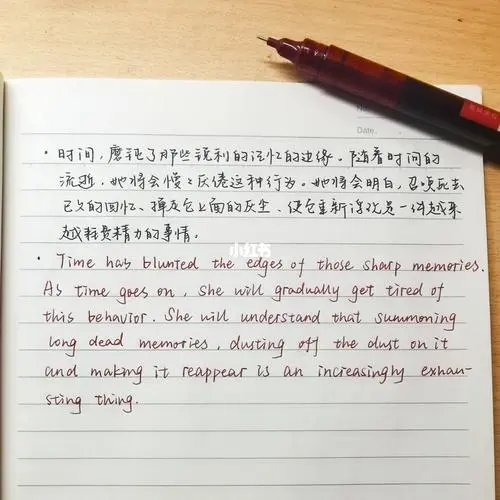 Date.
· 时间，磨钝了那些锐利的记忆的边缘。随着时间的
流逝，她将会慢慢厌倦这种行为。她将会明白，召唤死去
已久的回忆、掸去它上面的灰尘、使它重新浮现是一件越来
越耗费精力的事情。
小红书
· Time has blunted the edges of those sharp memories.
As time goes on, she will gradually get tired of
this behavior. She will understand that summoning
long dead memories, dusting off the dust on it
and making it reappear is an increasingly exhau-
sting thing.